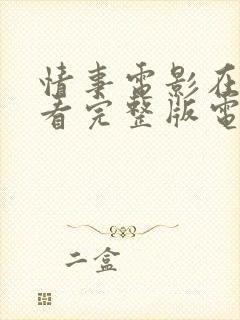 情事電影在
看完整版電
二盒